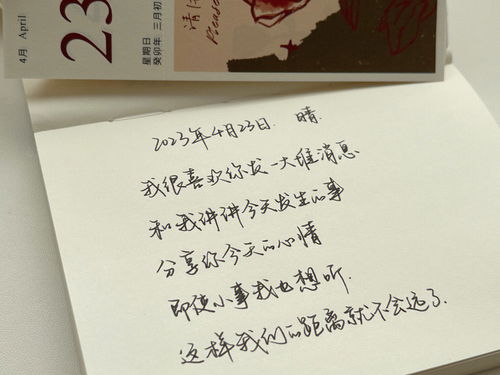 4月 April
23
星期日
癸卯年 三月初
清
Please
2023年4月23日. 晴.
我很喜欢你发一大堆消息
和我讲讲今天发生的事
分享你今天的心情
即使小事我也想听.
这样我们的距离就不会远了.